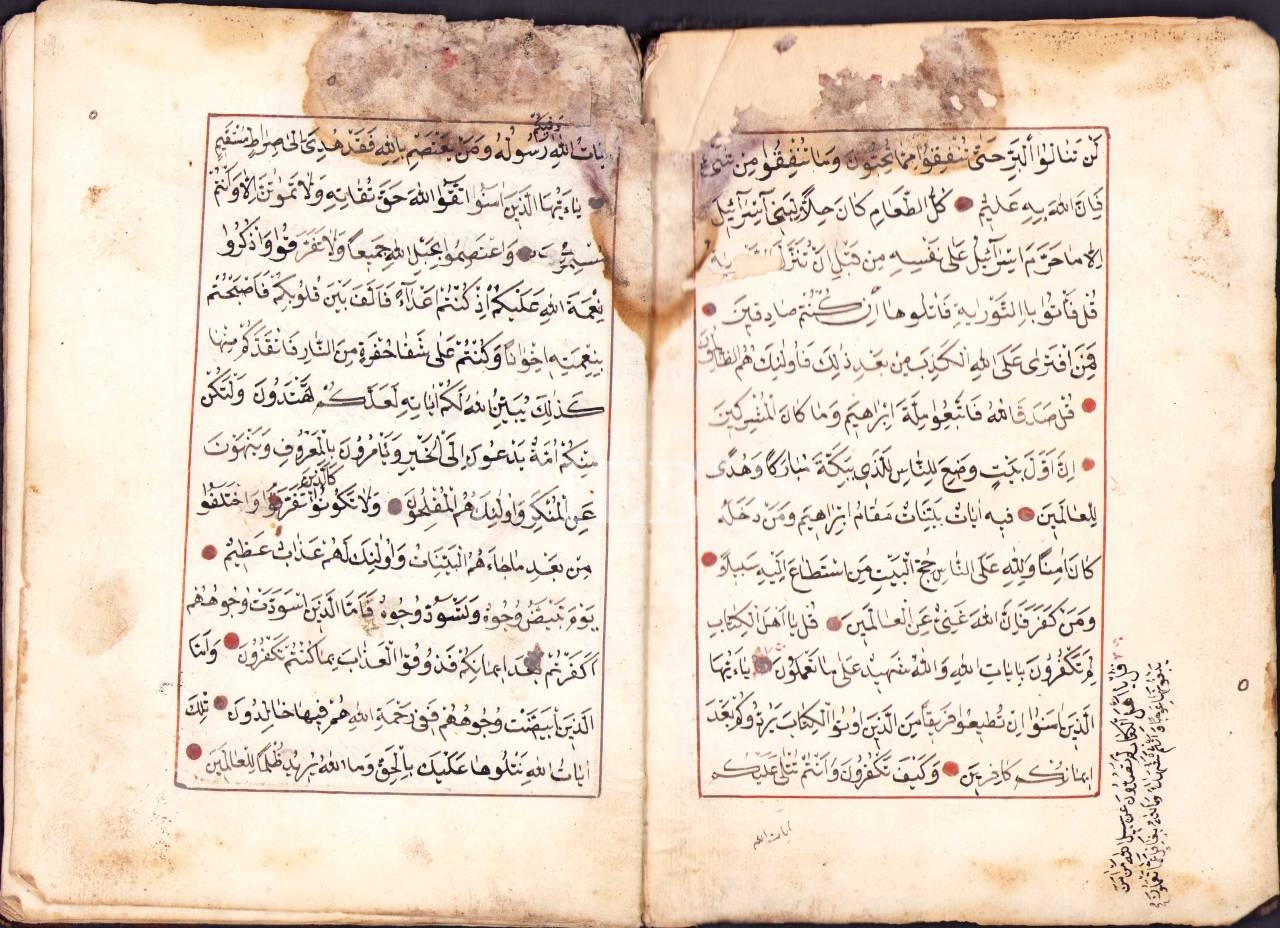 لَنْ تَنَالُوا الْبِرَّ حَتّٰى تُنْفِقُوا مِمَّا تُحِبُّونَ وَمَا تُنْفِقُوا مِنْ شَيْءٍ
فَاِنَّ اللّٰهَ بِهِ عَلِيمٌ كُلُّ الطَّعَامِ كَانَ حِلًّا لِبَنِى اِسْرَآئِيلَ
اِلَّا مَا حَرَّمَ اِسْرَآئِيلُ عَلٰى نَفْسِهِ مِنْ قَبْلِ اَنْ تُنَزَّلَ
قُلْ فَأْتُوا بِاالتَّوْرٰيةِ فَاتْلُوهَا اِنْ كُنْتُمْ صَادِقِينَ
فَمَنِ افْتَرٰى عَلَى اللّٰهِ الْكَذِبَ مِنْ بَعْدِ ذٰلِكَ فَاُولٰئِكَ هُمُ الظَّالِمُونَ
قُلْ صَدَقَ اللّٰهُ فَاتَّبِعُوا مِلَّةَ اِبْرَاهِيمَ وَمَا كَانَ الْمُشْرِكِينَ
اِنَّ اَوَّلَ بَيْتٍ وُضِعَ لِلنَّاسِ لَلَّذِى بِبَكَّةَ مُبَارَكًا وَهُدًى
لِلْعَالَمِينَ فِيهِ اٰيَاتٌ بَيِّنَاتٌ مَقَامُ اِبْرَاهِيمَ وَمَنْ دَخَلَهُ
كَانَ اٰمِنًا وَلِلّٰهِ عَلَى النَّاسِ حِجُّ الْبَيْتِ مَنِ اسْتَطَاعَ اِلَيْهِ سَبِيلًا
وَمَنْ كَفَرَ فَاِنَّ اللّٰهَ غَنِىٌّ عَنِ الْعَالَمِينَ قُلْ يَا اَهْلَ الْكِتَابِ
لِمَ تَكْفُرُونَ بِاٰيَاتِ اللّٰهِ وَاللّٰهُ شَهِيدٌ عَلٰى مَا تَعْمَلُونَ يَاءَيُّهَا
الَّذِينَ اٰمَنُوا اِنْ تُطِيعُوا فَرِيقًا مِنَ الَّذِينَ اُوتُوا الْكِتَابَ يَرُدُّوكُمْ بَعْدَ
اِيمَانِكُمْ كَافِرِينَ وَكَيْفَ تَكْفُرُونَ وَاَنْتُمْ تُتْلٰى عَلَيْكُمْ
اٰيات الله
قُلْ يَا اَهْلَ الْكِتَابِ لِمَ تَصُدُّونَ عَنْ سَبِيلِ اللّٰهِ مَنْ اٰمَنَ
تَبْغُونَهَا عِوَجًا وَاَنْتُمْ شُهَدَاءُ وَمَا اللّٰهُ بِغَافِلٍ عَمَّا تَعْمَلُونَ
وَفِيكُمْ
اٰيَاتُ اللّٰهِ رَسُولُهُ وَمَنْ يَعْتَصِمْ بِاللّٰهِ فَقَدْ هُدِىَ اِلٰى صِرَاطٍ مُسْتَقِيمٍ
يَاءَيُّهَا الَّذِينَ اٰمَنُوا اتَّقُوا اللّٰهَ حَقَّ تُقَاتِهِ وَلَا تَمُوتُنَّ اِلَّا وَاَنْتُمْ
مُسْلِمُونَ وَاعْتَصِمُوا بِحَبْلِ اللّٰهِ جَمِيعًا وَلَا تَفَرَّقُوا وَاذْكُرُوا
نِعْمَةَ اللّٰهِ عَلَيْكُمْ اِذْ كُنْتُمْ اَعْدَآءً فَاَلَّفَ بَيْنَ قُلُوبِكُمْ فَاَصْبَحْتُمْ
بِنِعْمَتِهِ اِخْوَانًا وَكُنْتُمْ عَلٰى شَفَا حُفْرَةٍ مِنَ النَّارِ فَاَنْقَذَكُمْ مِنْهَا
كَذٰلِكَ يُبَيِّنُ اللّٰهُ لَكُمْ اٰيَاتِهِ لَعَلَّكُمْ تَهْتَدُونَ وَلْتَكُنْ
مِنْكُمْ اُمَّةٌ يَدْعُونَ اِلَى الْخَيْرِ وَيَأْمُرُونَ بِالْمَعْرُوفِ وَيَنْهَوْنَ
كَالَّذِينَ
عَنِ الْمُنْكَرِ وَاُولٰئِكَ هُمُ الْمُفْلِحُونَ وَلَا تَكُونُوا تَفَرَّقُوا وَاخْتَلَفُوا
مِنْ بَعْدِ مَا جَاءَهُمُ الْبَيِّنَاتُ وَاُولٰئِكَ لَهُمْ عَذَابٌ عَظِيمٌ
يَوْمَ تَبْيَضُّ وُجُوهٌ وَتَسْوَدُّ وُجُوهٌ فَاَمَّا الَّذِينَ اسْوَدَّتْ وُجُوهُهُمْ
اَكَفَرْتُمْ بَعْدَ اِيمَانِكُمْ فَذُوقُوا الْعَذَابَ بِمَا كُنْتُمْ تَكْفُرُونَ وَاَمَّا
الَّذِينَ ابْيَضَّتْ وُجُوهُهُمْ فَفِى رَحْمَةِ اللّٰهِ هُمْ فِيهَا خَالِدُونَ تِلْكَ
اٰيَاتُ اللّٰهِ نَتْلُوهَا عَلَيْكَ بِالْحَقِّ وَمَا اللّٰهُ يُرِيدُ ظُلْمًا لِلْعَالَمِينَ